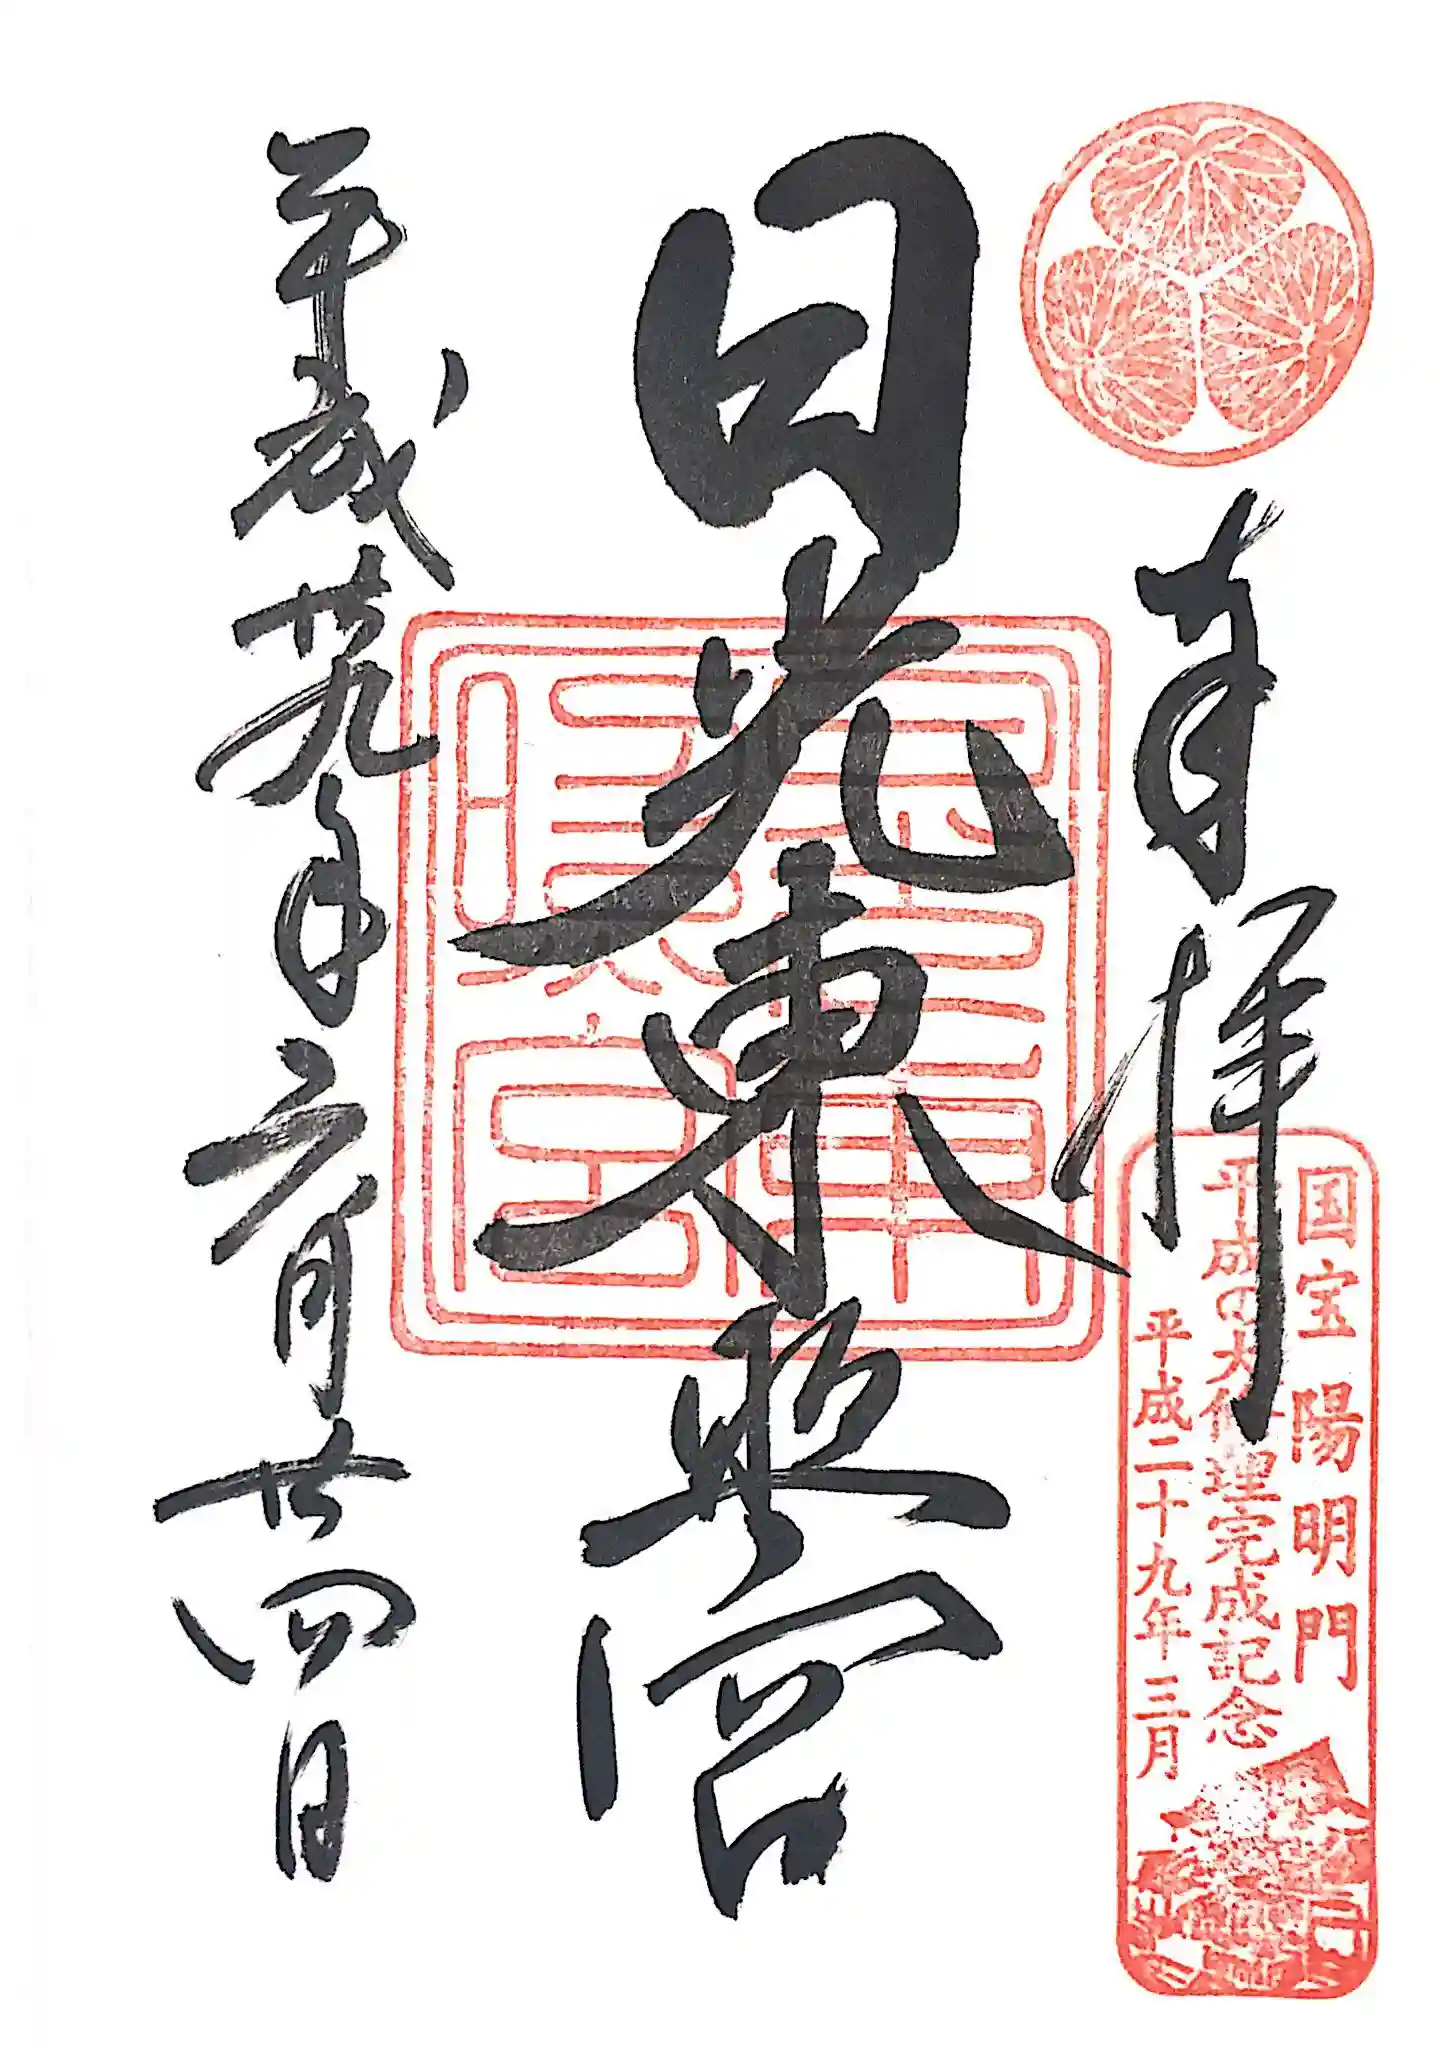 奉拝
国宝 陽明門
平成の大修理完成記念
平成二十九年三月
日光東照宮
平成廿九年六月廿四日